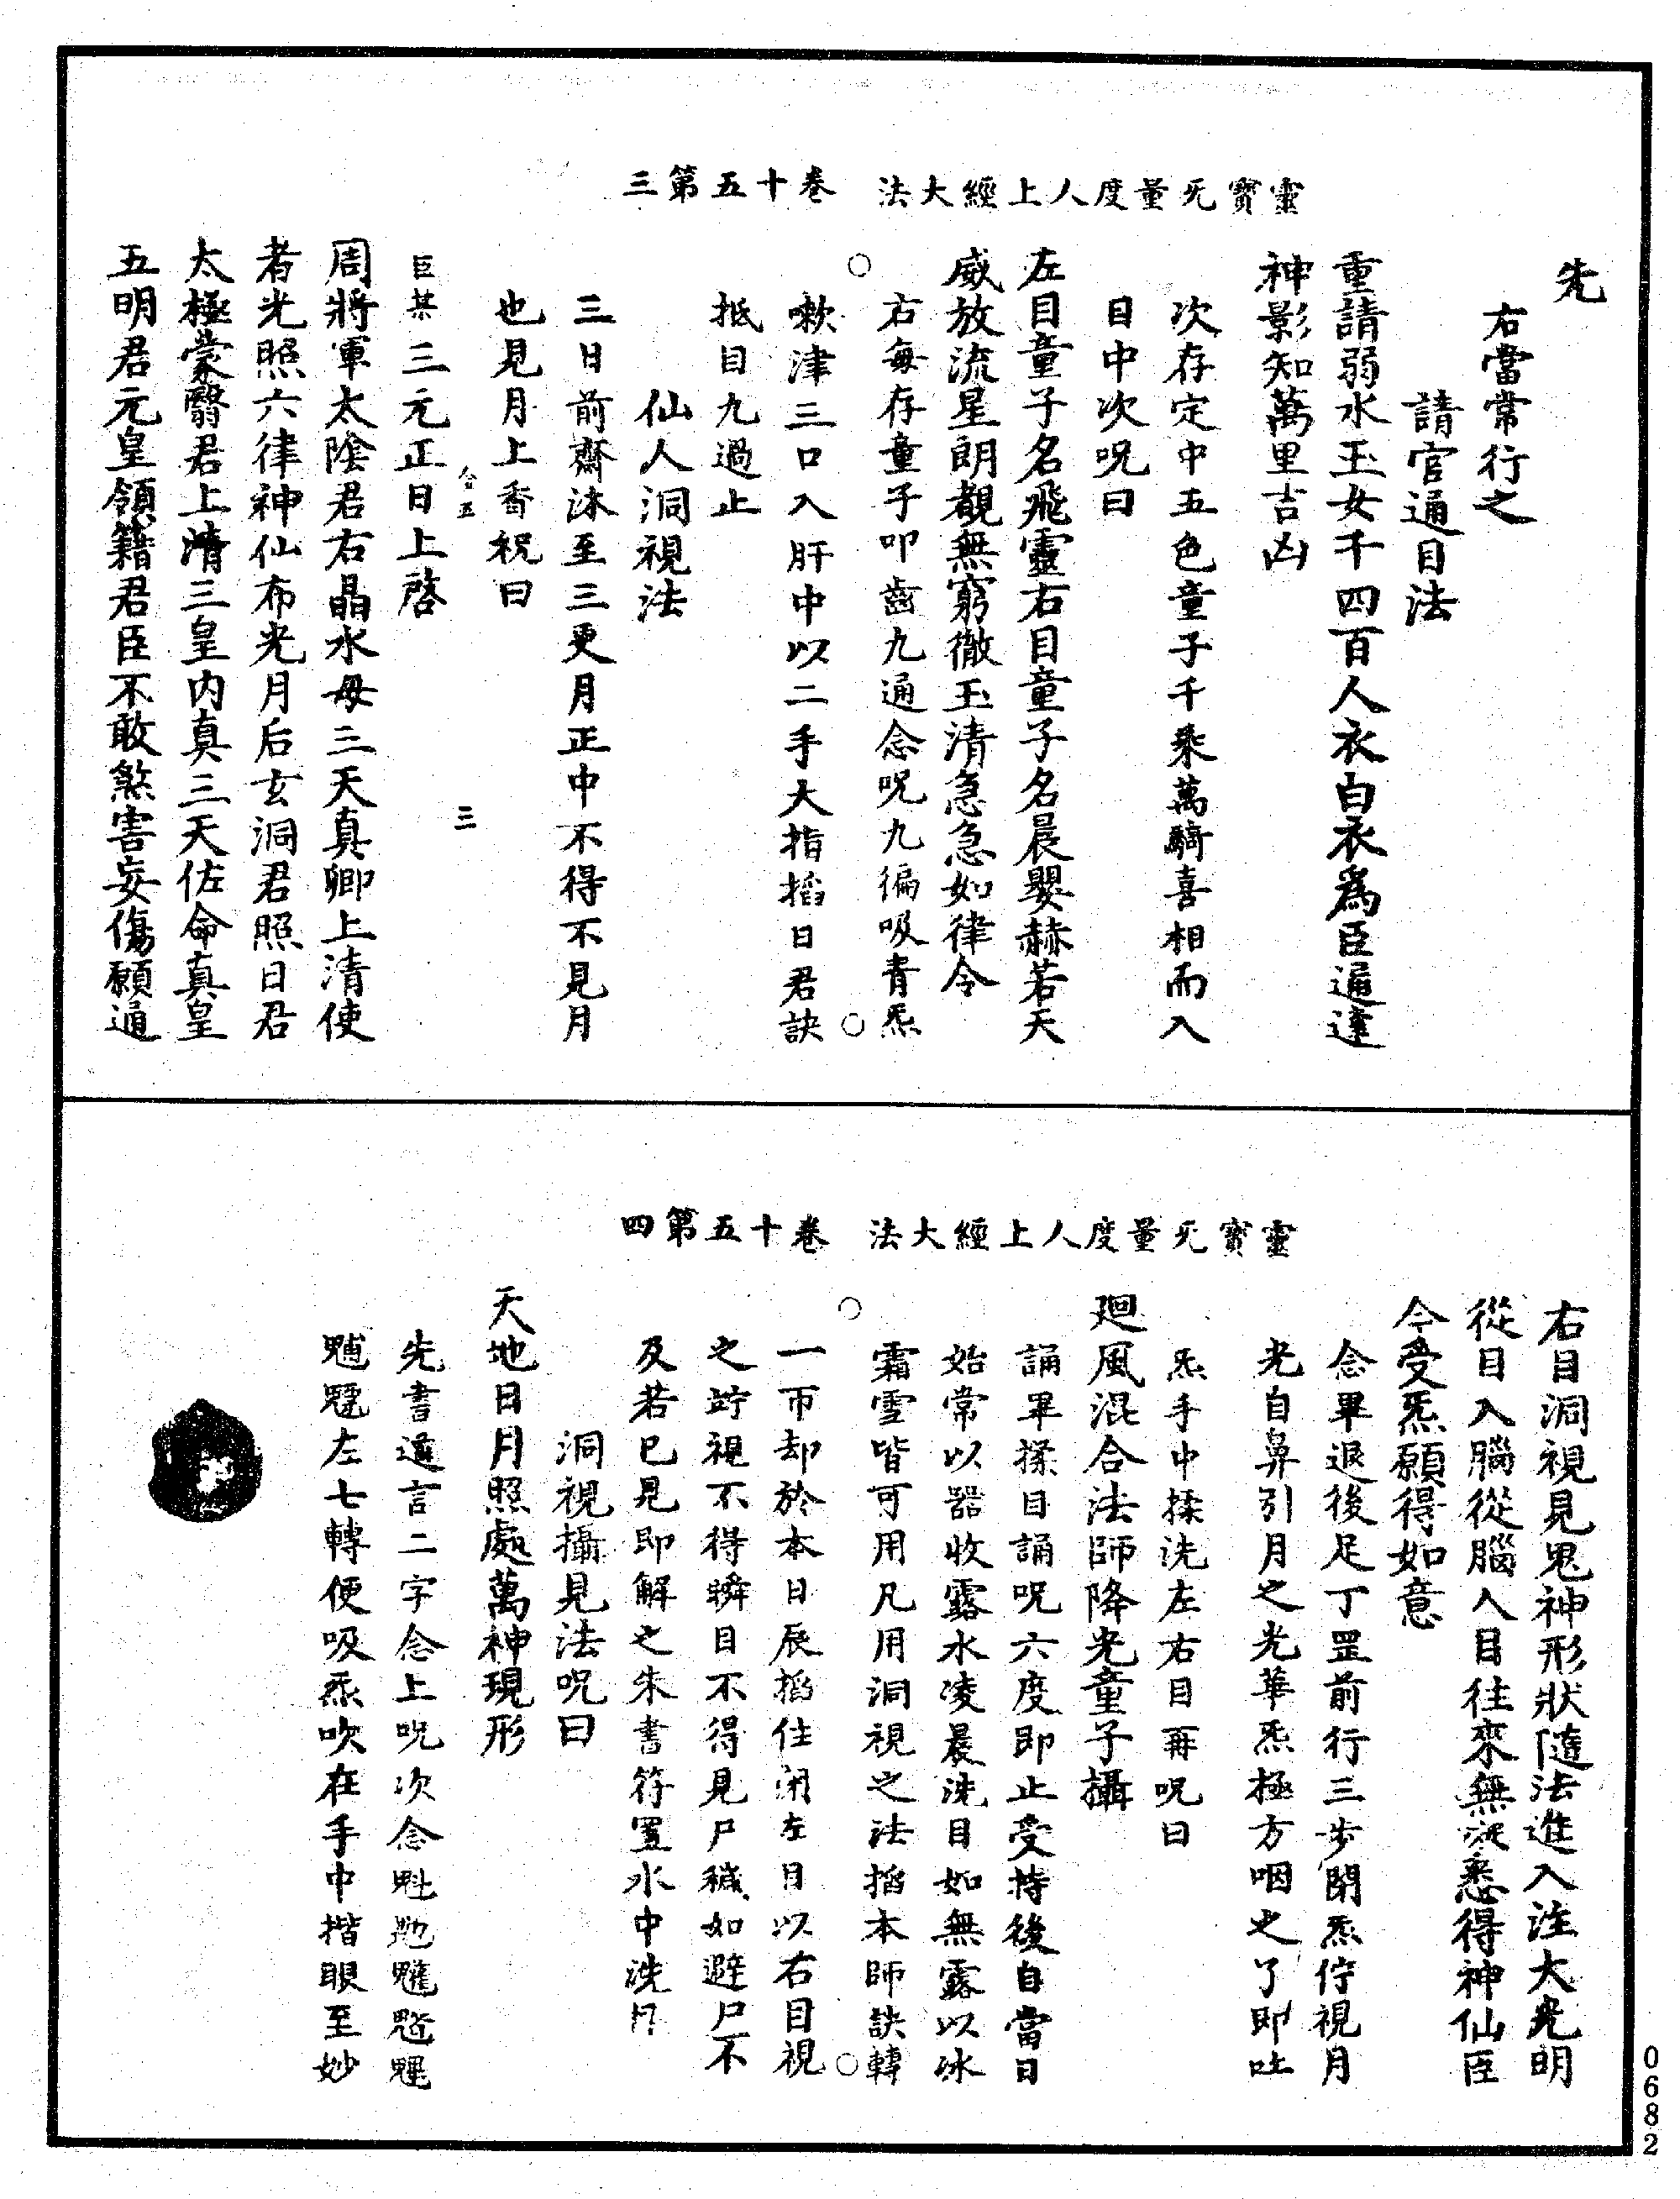 靈寶无量度人上經大法　卷十五第三
先
右當常行之
請官通目法
重請弱水玉女千四百人衣白衣為臣遍達
神影知萬里吉凶
次存定中五色童子千乘萬騎喜相而入
目中次呪曰
左目童子名飛靈右目童子名晨嬰赫若天
威放流星朗覩無窮徹玉清急急如律令
右每存童子叩齒九通念呪九徧吸青炁
嗽津三口入肝中以二手大指掐日君訣
抵目九過止
仙人洞視法
三日前齋沐至三更月正中不得不見月
也見月上香祝曰
臣某三元正日上啓
三
周將軍太陰君右晶水母三天真卿上清使
者光照六律神仙布光月后玄洞君照日君
太極蒙翳君上清三皇內真三天佐命真皇
五明君元皇領籍君臣不敢煞害妄傷願通
靈寶无量度人上經大法　卷十五第四
右目洞視見鬼神形狀隨法進入注大光明
從目入腦從腦入目往來無悉得神仙臣
今受炁願得如意
念畢退後足丁罡前行三步閉炁佇視月
光自鼻引月之光華炁極方咽之了即吐
炁手中揉洗左右目再呪曰
廻風混合法師降光童子攝
誦畢揉目誦呪六度即止受持後自當日
始常以器收露水凌晨洗目如無露以冰
霜雪皆可用凡用洞視之法掐本師訣轉
一帀却於本日辰掐住閉左目以右目視
之竚視不得瞬目不得見尸穢如避尸不
及若已見即解之朱書符置水中洗目
洞視攝見法呪曰
天地日月照處萬神現形
先書道言二字念上呪次念魁䰢魓
左七轉便吸炁吹在手中揩眼至妙
0682